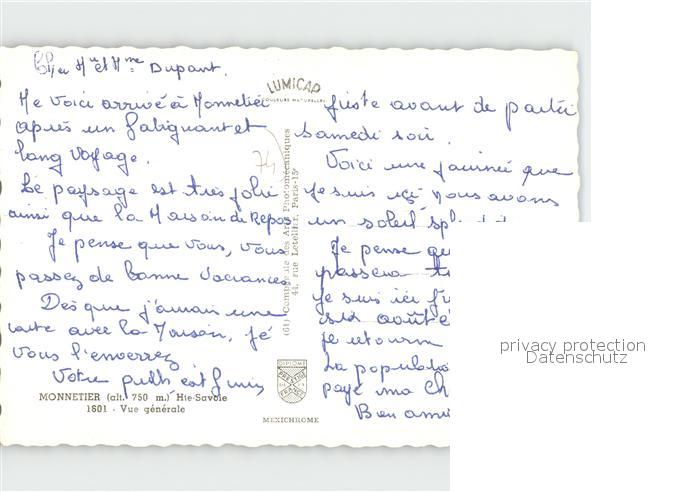 Cher Mr et Mme Dupont.
Me voici arrivé à Monnetier
après un fatiguant et
long voyage.
Le paysage est très jolie
ainsi que la Maison de Repos
Je pense que vous, vous
passez de bonne vacances
Dès que j'aurai une
carte avec la Maison, je
vous l'enverrez
Votre pull est fini
MONNETIER (alt. 750 m.) Hte-Savoie
1601 - Vue générale
LUMICAP
COULEURS NATURELLES
74
(61) Compagnie des Arts Photomécaniques
44, rue Letellier, Paris-15e
DIPLOME
PRESTIGE
DE LA
FRANCE
MEXICHROME
juste avant de partir
samedi soir.
Voici une journée que
je suis ici nous avons
un soleil
Je pense
passera
je suis ici
août
je retourn
La populatio
payé ma
Bien ami
privacy protection
Datenschutz